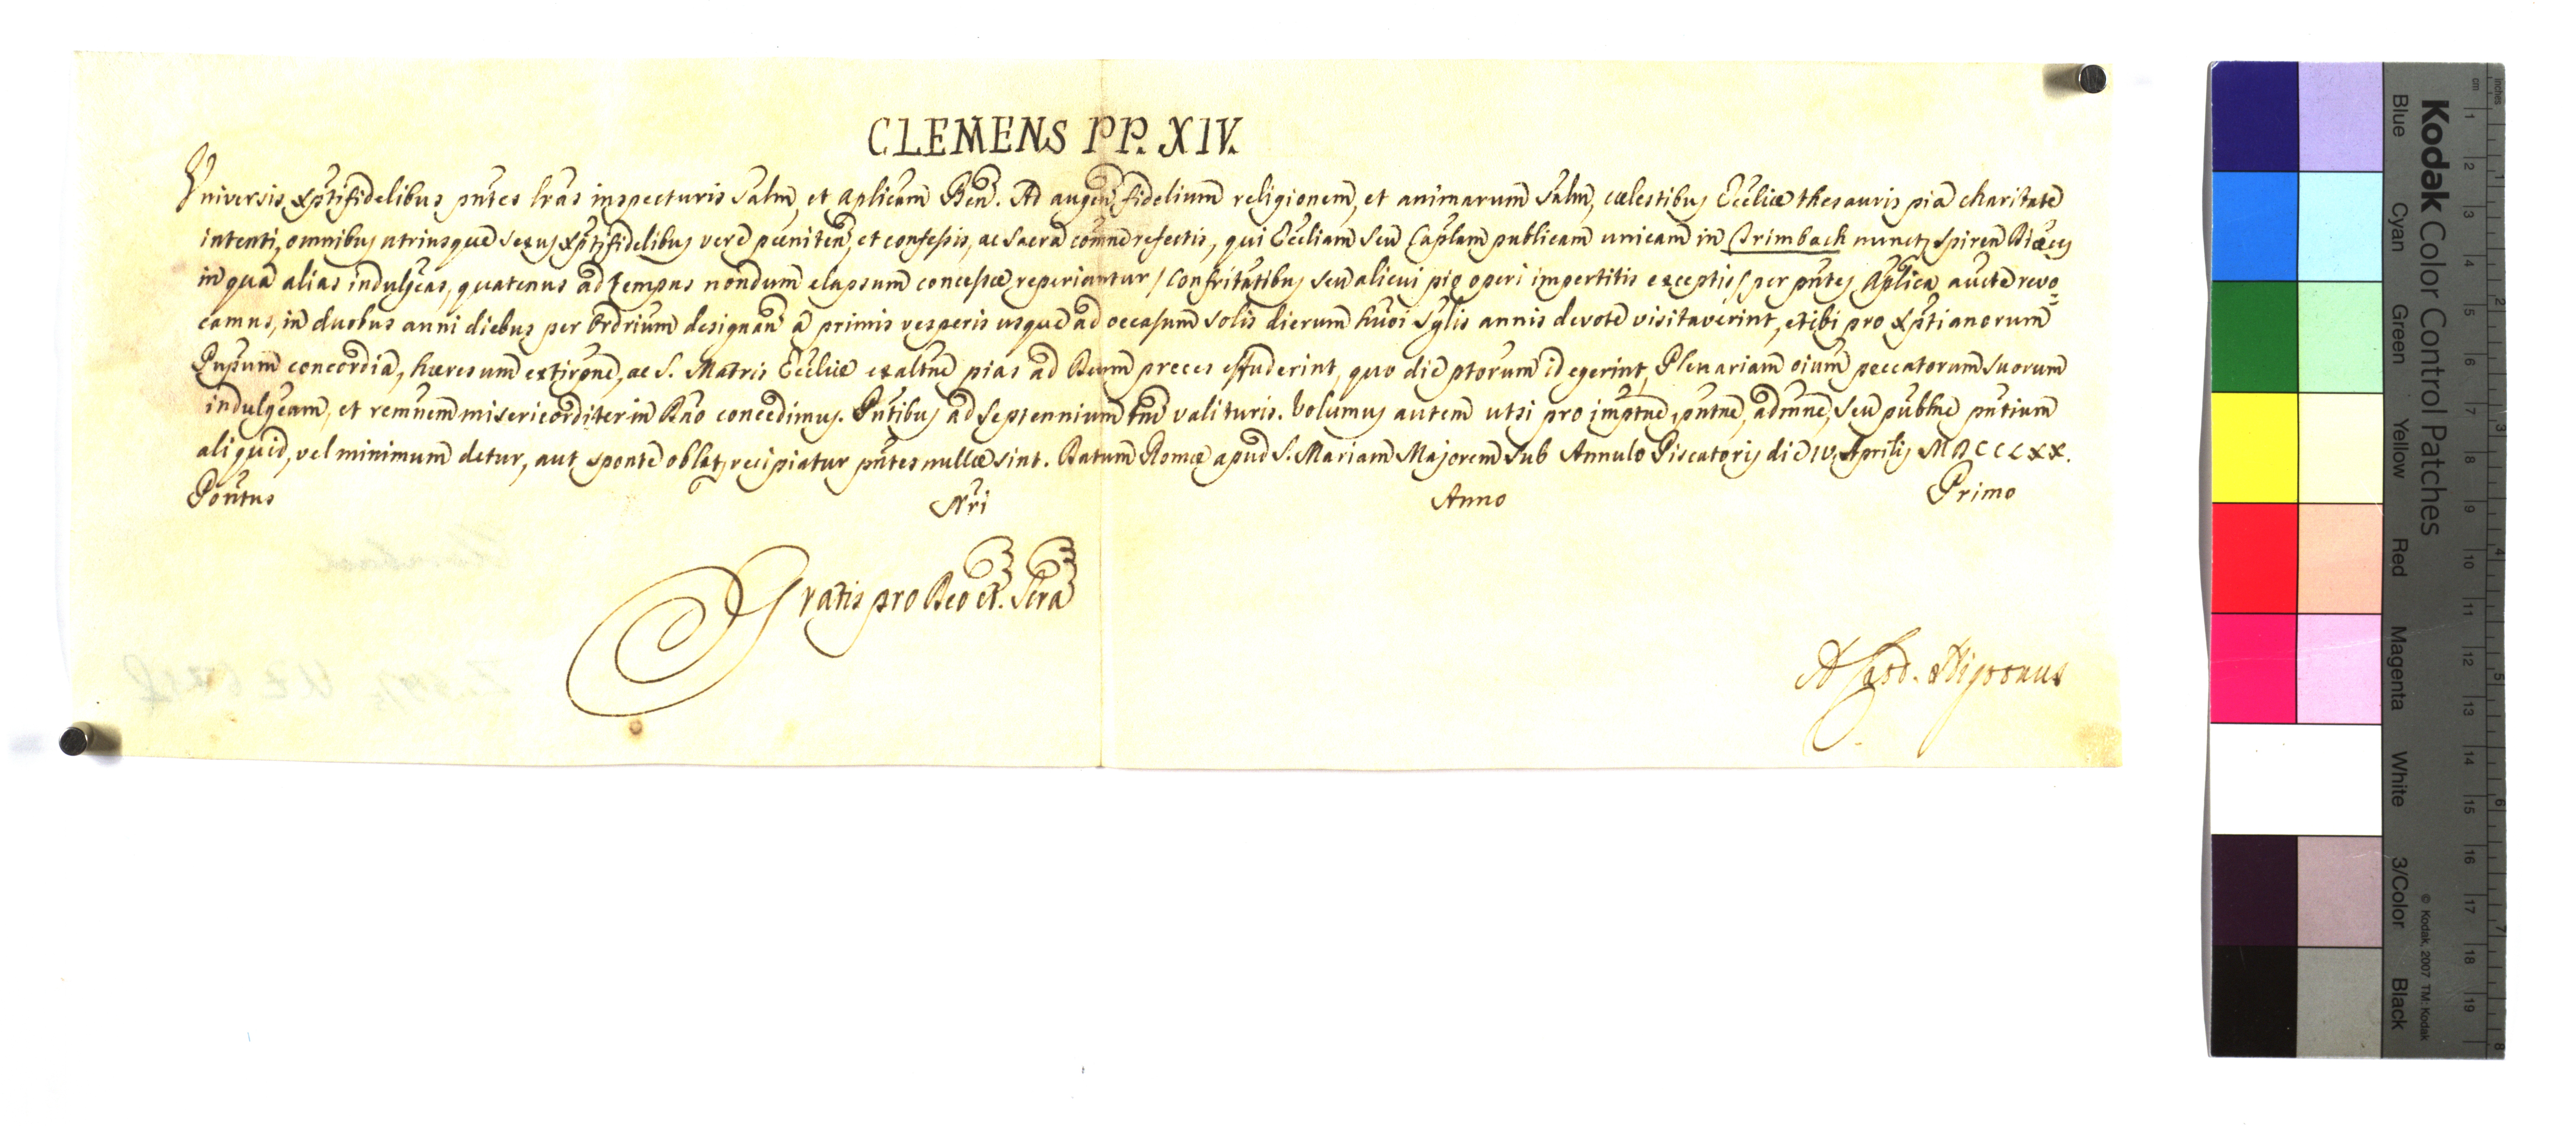 CLEMENS PP. XIV.
Universis Xptifidelibus pntes lras inspecturis Salm, et aplicam Ben. Ad augen fidelium religionem, et animarum Salm, cœlestibus Eccliæ thesauris pia charitate
intenti, omnibus utriusque sexus Xptifidelibus vere pœniten, et confessis, ac Sacra comne refectis, qui Eccliam seu Caplam publicam unicam in Crimbach nunc Spiren Diæcis
in qua alias indulgeas, quatenus ad tempus nondum elapsum concessæ reperiantur / Confritatibus seu alicui pio operi impertitis exceptis / per pntes Aplica aucte revo=
camus, in duobus anni diebus per Ordrium designan a primis vesperis usque ad occasum Solis dierum huõi Sglis annis devote visitaverint, et ibi pro Xptianorum
Pnpum concordia, hæresum extirpne, ac S. Matris Eccliæ exaltne pias ad Deum preces effuderint, quo die ptorum id egerint, Plenariam oium peccatorum suorum
indulgeam, et remnem misericorditer in Dno concedimus. Pntibus ad Septennium tm valituris. Volumus autem ut si pro imptne, pntne, admne, seu publne pntium
aliquid, vel minimum detur, aut sponte oblat recipiatur pntes nullæ sint. Datum Romæ apud S. Mariam Majorem sub Annulo Piscatoris die IV Aprilis MDCCLXX.
Pontus Nri Anno Primo
Gratis pro Deo et Scra
A. Card. Nigronus
Kodak Color Control Patches
Blue Cyan Green Yellow Red Magenta White 3/Color Black
© Kodak, 2007 TM: Kodak
inches 1 2 3 4 5 6 7 8
cm 1 2 3 4 5 6 7 8 9 10 11 12 13 14 15 16 17 18 19